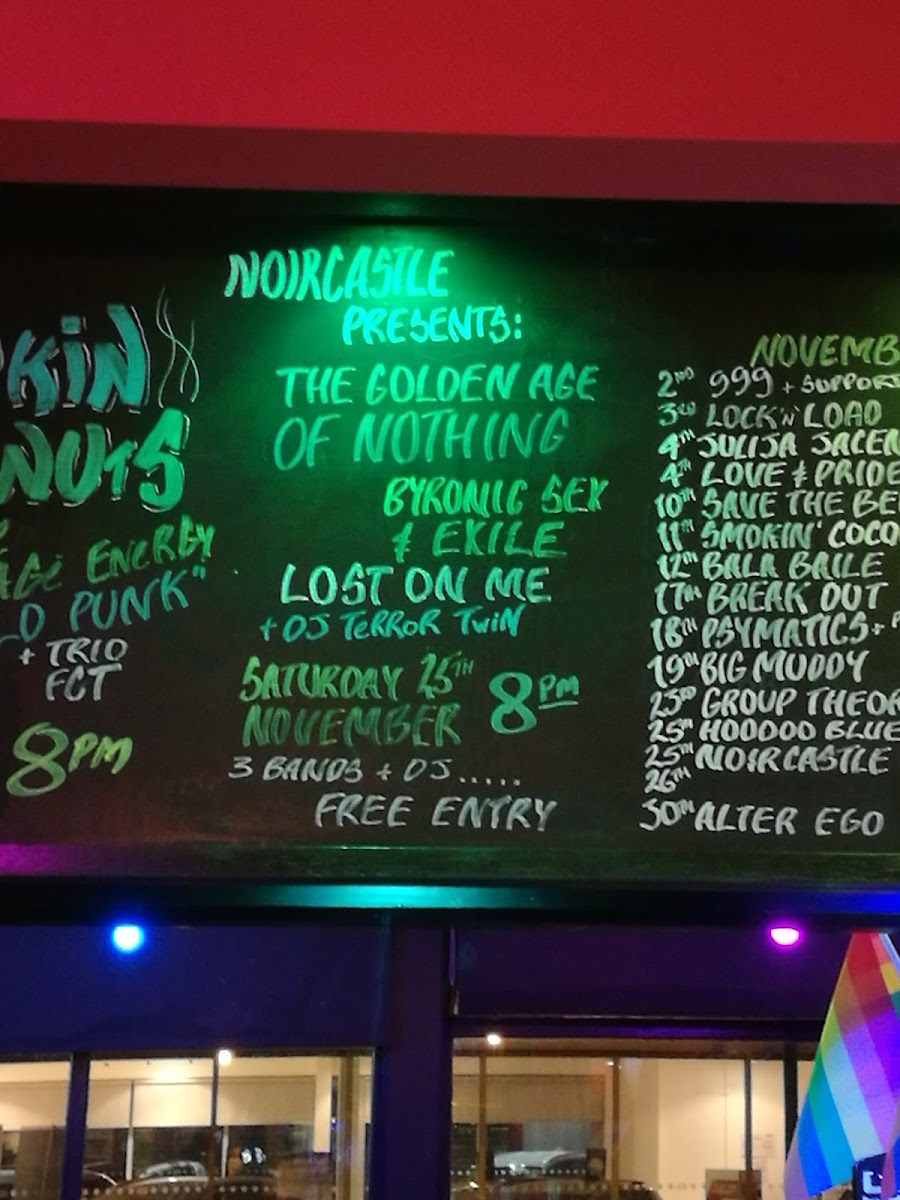 KIN
NUTS
AGE ENERGY
LD PUNK"
+ TRIO
FCT
8PM
NOIRCASTLE
PRESENTS:
THE GOLDEN AGE
OF NOTHING
BYRONIC SEX
& EXILE
LOST ON ME
+ DJ TERROR TWIN
SATURDAY 25TH
NOVEMBER
8PM
3 BANDS + DJ.....
FREE ENTRY
NOVEMB
2ND 999 + SUPPORT
3RD LOCK 'N' LOAD
4TH JULIJA JACEN
4TH LOVE & PRIDE
10TH SAVE THE BE
11TH SMOKIN' COCO
12TH BALA BAILE
17TH BREAK OUT
18TH PSYMATICS + P
19TH BIG MUDDY
23RD GROUP THEOR
25TH HOODOO BLUE
25TH NOIRCASTLE
26TH
30TH ALTER EGO